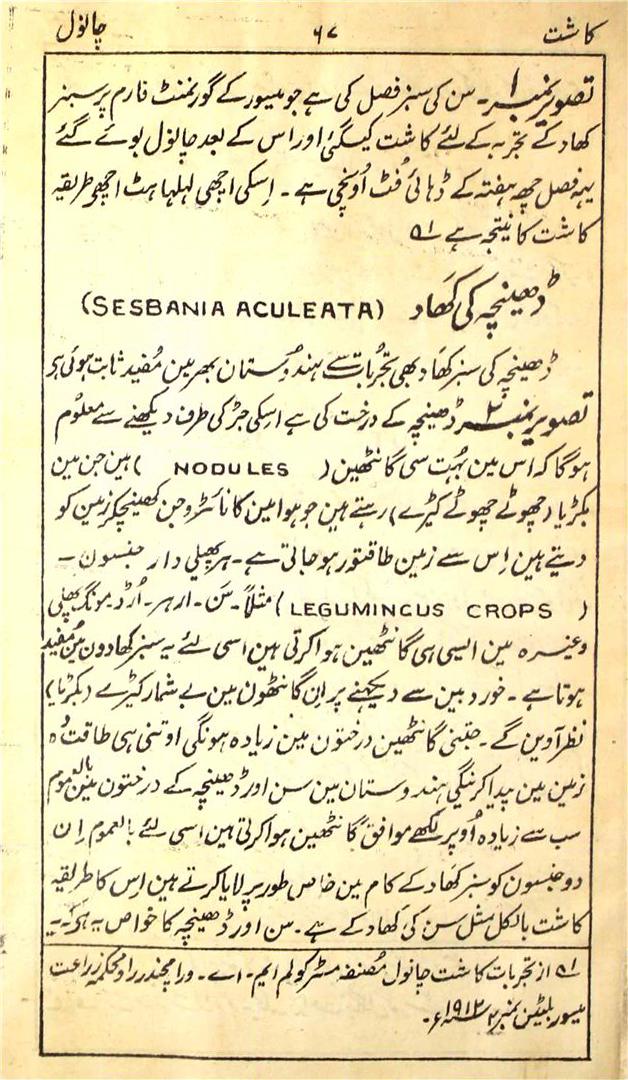 کاشت ۶۷ چانول
تصویر نمبر ۱ ۔ سن کی سبز فصل کی ہے جو میسور کے گورنمنٹ فارم پر سبز
کھاد کے تجربہ کے لئے کاشت کیگئی اور اس کے بعد چانول بوئے گئے
یہہ فصل چھہ ہفتہ کے ڈہائی فُٹ اُونچی ہے ۔ اِسکی اچھی لہلہاہٹ اچھے طریقہ
کاشت کا نتیجہ ہے ۱ه
ڈھینچہ کی کھَاد (SESBANIA ACULEATA)
ڈھینچہ کی سبز کھَاد بھی تجرُبات سے ہندوُستان بھر مین مُفید ثابت ہوئی ہی
تصویر نمبر ۲ ڈھینچہ کے درخت کی ہے اسکی جڑ کی طرف دیکھنے سے معلوُم
ہوگا کہ اس مین بہُت سی گانٹھین ( NODULES ) ہین جن مین
بکڑیا (چھوٹے چھوٹے کیڑے) رہتے ہین جو ہوا مین کا نائٹروجن کھینچکر زمین کو
دیتے ہین اِس سے زمین طاقتور ہو جاتی ہے ۔ ہر پھلی دار جنسون ۔
( LEGUMINCUS CROPS ) مثلاً ۔ سَن ۔ ارہر ۔ اُڑد ۔ مونگ پھلی
وغیرہ مین ایسی ہی گانٹھین ہوا کرتی ہین اسی لئے یہ سبز کھادون مین مُفید
ہوتا ہے ۔ خوردبین سے دیکہنے پر اِن گانٹھون مین بے شمار کیڑے (بکڑیا)
نظر آوین گے ۔ جتنی گانٹھین درختون مین زیادہ ہونگی اوتنی ہی طاقت وُہ
زمین مین پیدا کرینگی ہندوستان مین سن اور ڈھینچہ کے درختون مین بالعموم
سب سے زیادہ اُوپر لکھے موافق گانٹھین ہوا کرتی ہین اسی لئے بالعموم اِن
دو جنسون کو سبز کھاد کے کام مین خاص طور پر لایا کرتے ہین اِس کا طریقہ
کاشت بالکل مثل سن کی کَھاد کے ہے ۔ سن اور ڈھینچہ کا خواص یہ ہی ۔۔
۱ه از تجربات کاشت چانول مُصنفہ مسٹر کولم ایم ۔ اے ۔ و رامچندر راو محکمہ زراعت
میسور بلیٹن نمبر ۲ سنہ ۱۹۱۲ء ۔